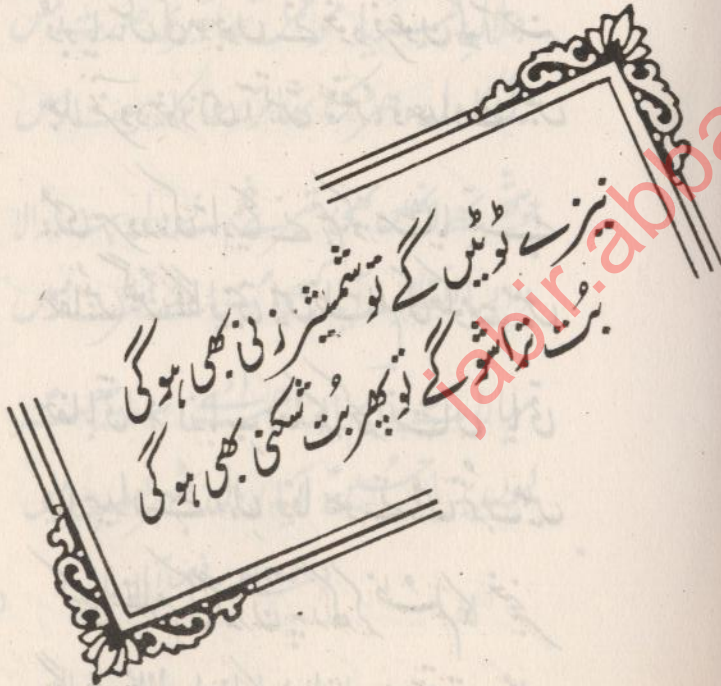 نیزے ٹوٹیں گے تو شمشیر زنی بھی ہوگی
بُت تراشو گے تو پھر بُت شکنی بھی ہوگی
jabir.abba